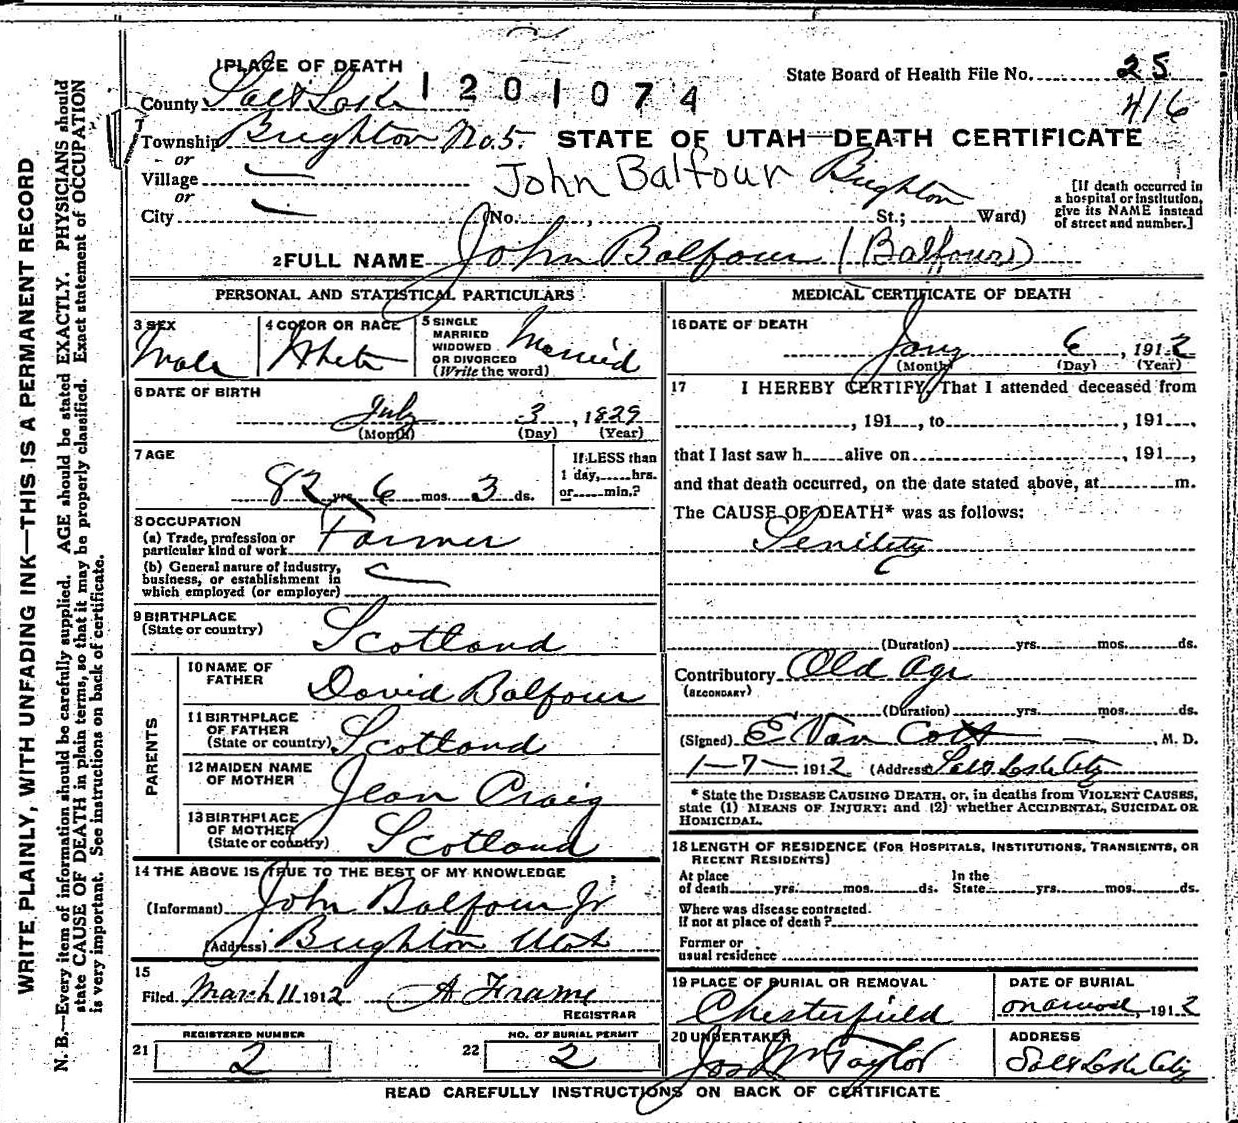 WRITE PLAINLY, WITH UNFADING INK—THIS IS A PERMANENT RECORD
N. B.—Every item of information should be carefully supplied. AGE should be stated EXACTLY. PHYSICIANS should
state CAUSE OF DEATH in plain terms, so that it may be properly classified. Exact statement of OCCUPATION
is very important. See instructions on back of certificate.
1 PLACE OF DEATH
State Board of Health File No. 25
416
County Salt Lake 1201074
Township Brighton No. 5. STATE OF UTAH—DEATH CERTIFICATE
or
Village
John Balfour Brighton
or
City (No. , St.; Ward)
[If death occurred in
a hospital or institution,
give its NAME instead
of street and number.]
2 FULL NAME John Balfour (Balfour)
PERSONAL AND STATISTICAL PARTICULARS
3 SEX Male
4 COLOR OR RACE White
5 SINGLE
MARRIED
WIDOWED
OR DIVORCED
(Write the word) Married
6 DATE OF BIRTH
July 3, 1829
(Month) (Day) (Year)
7 AGE
82 yrs. 6 mos. 3 ds.
If LESS than
1 day, hrs.
or min.?
8 OCCUPATION
(a) Trade, profession or
particular kind of work Farmer
(b) General nature of industry,
business, or establishment in
which employed (or employer)
9 BIRTHPLACE
(State or country) Scotland
PARENTS
10 NAME OF
FATHER David Balfour
11 BIRTHPLACE
OF FATHER
(State or country) Scotland
12 MAIDEN NAME
OF MOTHER Jean Craig
13 BIRTHPLACE
OF MOTHER
(State or country) Scotland
14 THE ABOVE IS TRUE TO THE BEST OF MY KNOWLEDGE
(Informant) John Balfour Jr
(Address) Brighton Utah
15
Filed March 11 1912 A Frame
REGISTRAR
REGISTERED NUMBER
21 2
NO. OF BURIAL PERMIT
22 2
MEDICAL CERTIFICATE OF DEATH
16 DATE OF DEATH
Jany 6, 1912
(Month) (Day) (Year)
17 I HEREBY CERTIFY, That I attended deceased from
, 191 , to , 191 ,
that I last saw h alive on , 191 ,
and that death occurred, on the date stated above, at m.
The CAUSE OF DEATH* was as follows:
Senility
(Duration) yrs. mos. ds.
Contributory Old Age
(SECONDARY)
(Duration) yrs. mos. ds.
(Signed) E Van Cott, M. D.
1-7- 1912 (Address) Salt Lake City
* State the DISEASE CAUSING DEATH, or, in deaths from VIOLENT CAUSES,
state (1) MEANS OF INJURY; and (2) whether ACCIDENTAL, SUICIDAL OR
HOMICIDAL.
18 LENGTH OF RESIDENCE (FOR HOSPITALS, INSTITUTIONS, TRANSIENTS, OR
RECENT RESIDENTS)
At place
of death yrs. mos. ds.
In the
State yrs. mos. ds.
Where was disease contracted.
If not at place of death?
Former or
usual residence
19 PLACE OF BURIAL OR REMOVAL
Chesterfield
DATE OF BURIAL
, 1912
20 UNDERTAKER
Taylor
ADDRESS
Salt Lake City
READ CAREFULLY INSTRUCTIONS ON BACK OF CERTIFICATE